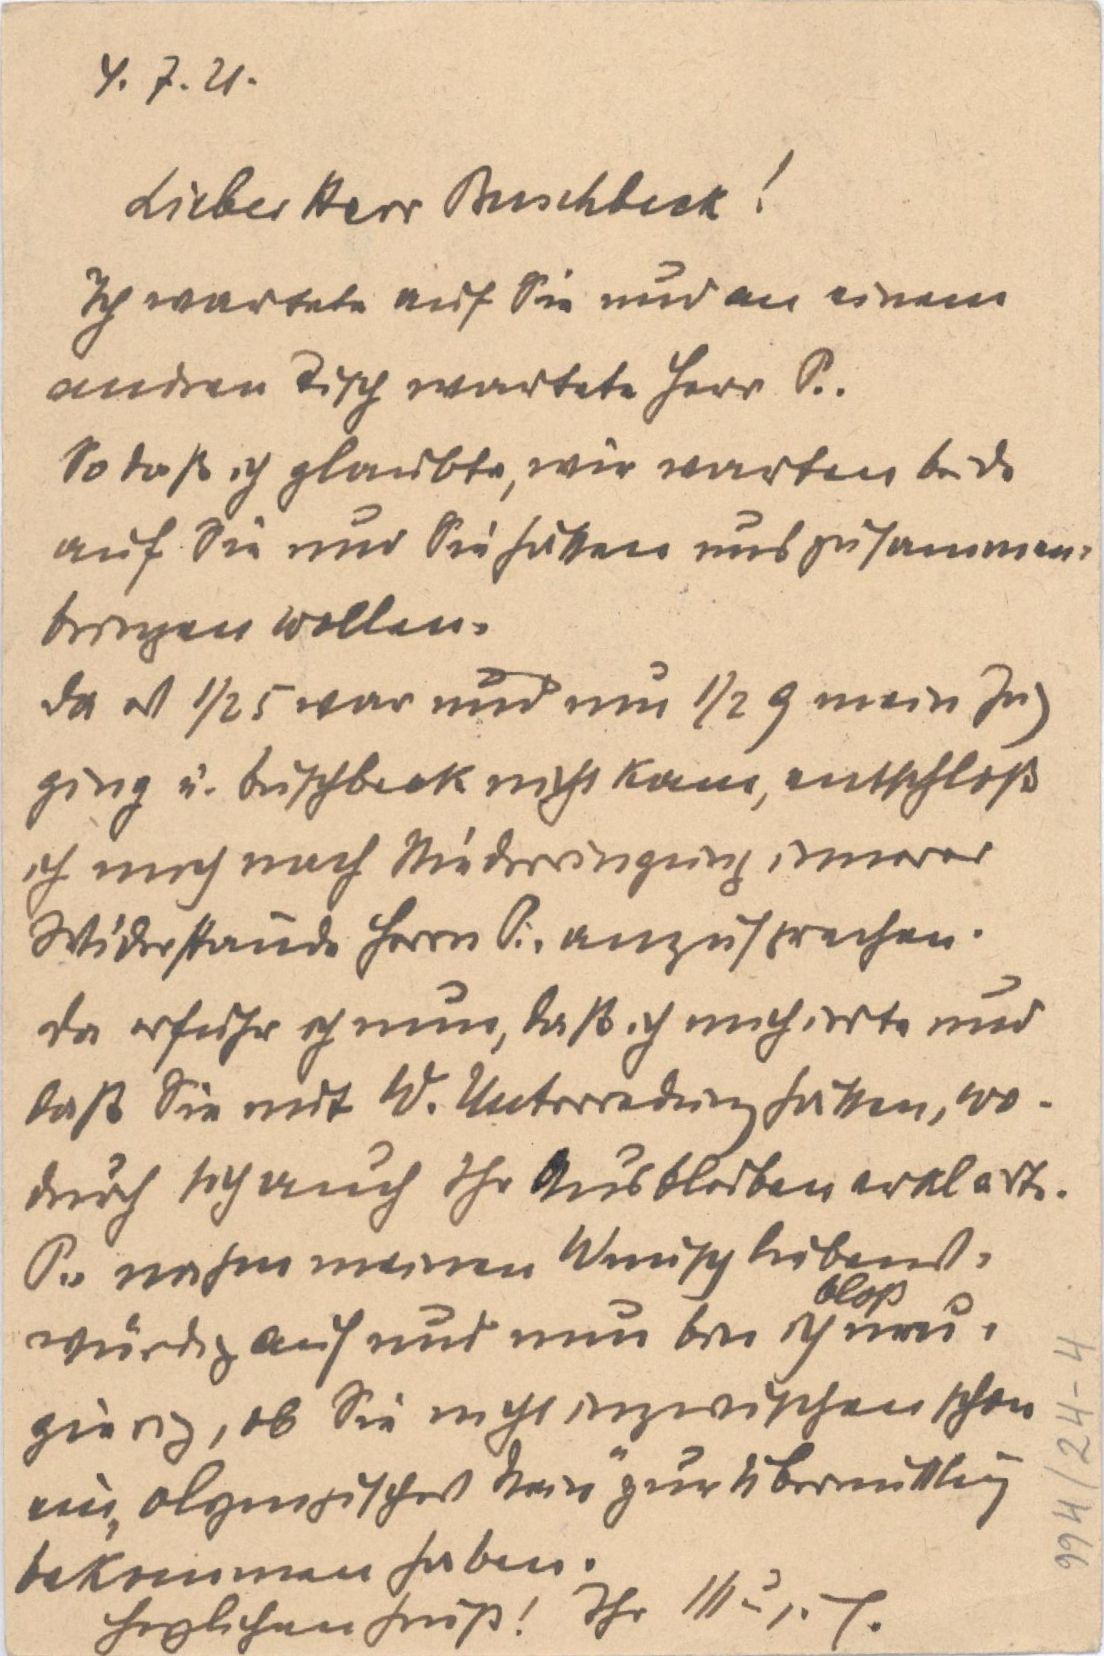 4. 7. 21.
Lieber Herr Buschbeck!
Ich wartete auf Sie und an einem
andren Tisch wartete Herr P..
So daß ich glaubte, wir warten beide
auf Sie und Sie hätten uns zusammen-
bringen wollen.
Da es 1/2 5 war und um 1/2 9 mein Zug
ging u. Buschbeck nicht kam, entschloß
ich mich nach Niederringung innerer
Widerstände Herrn P.. anzusprechen.
Da erfuhr ich nun, daß ich mich irrte und
daß Sie mit W. Unterredung hätten, wo-
durch sich auch Ihr Ausbleiben erklärte.
P.. nahm meinen Wunsch liebens-
würdig auf und nun bin ich bloß neu-
gierig, ob Sie nicht inzwischen schon
ein „olympisches Nein" zur Übermittlung
bekommen haben.
Herzlichen Gruß! Ihr
994/24-4